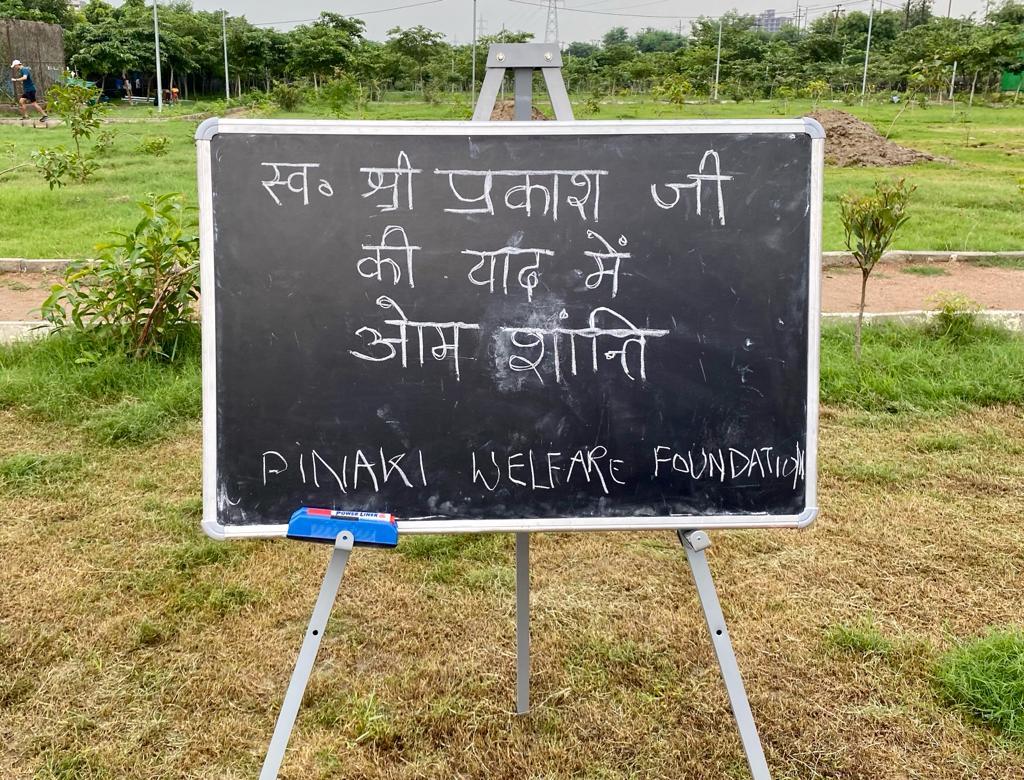 स्व. श्री प्रकाश जी
की याद में
ओम शांन्ति
PINAKI WELFARE FOUNDATION
POWER LINER